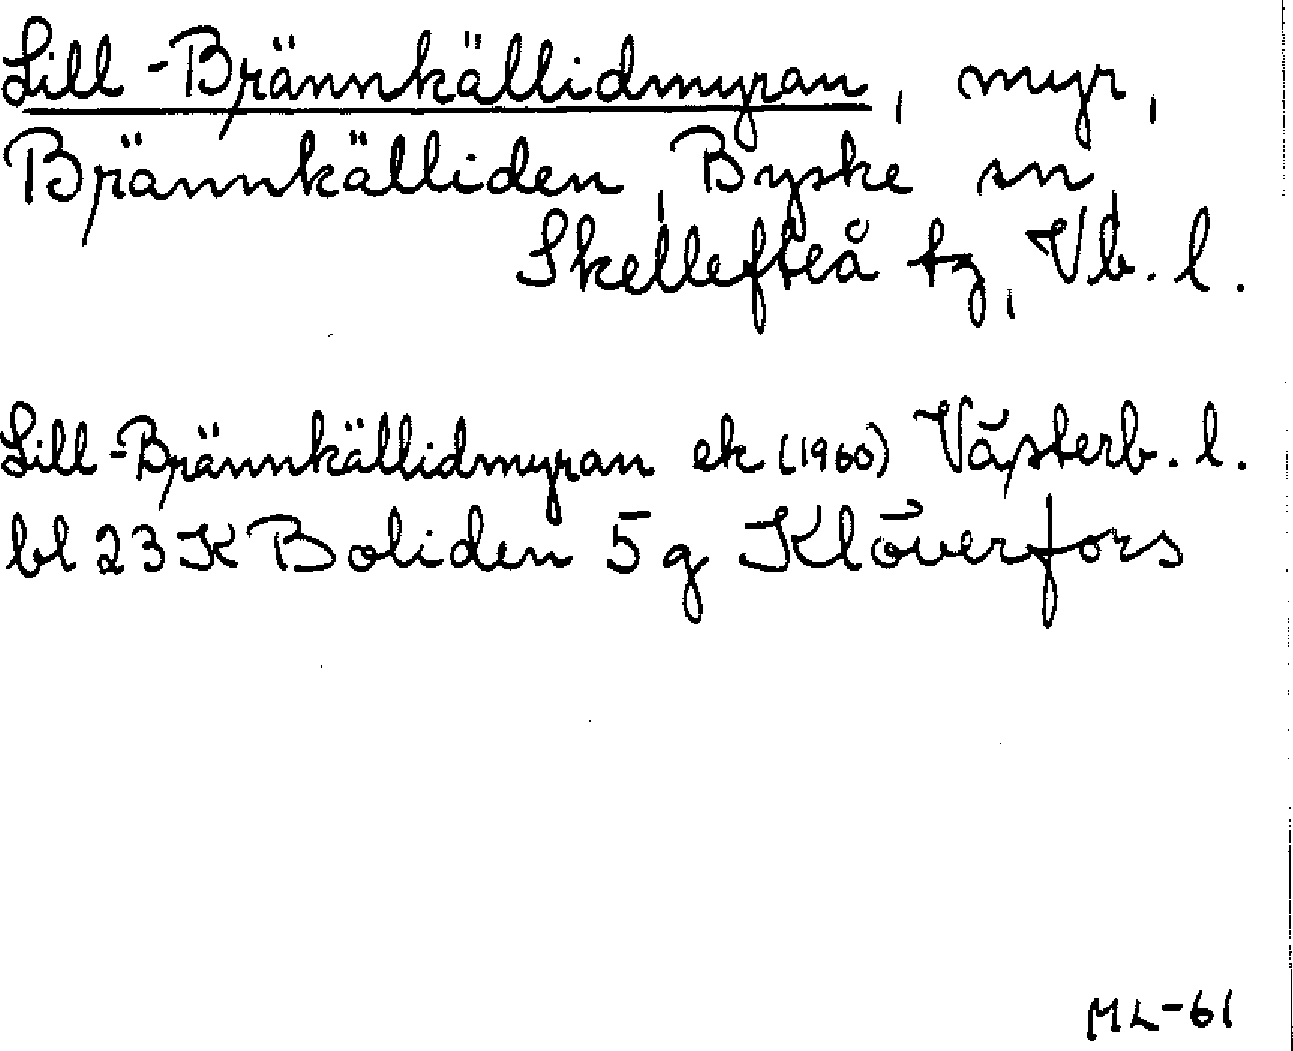 Lill-Brännkällidmyran, myr,
Brännkälliden, Byske sn,
Skellefteå tg, Vb. l.
Lill-Brännkällidmyran ek (1960) Västerb. l.
bl 23 K Boliden 5 g Klöverfors
ML-61